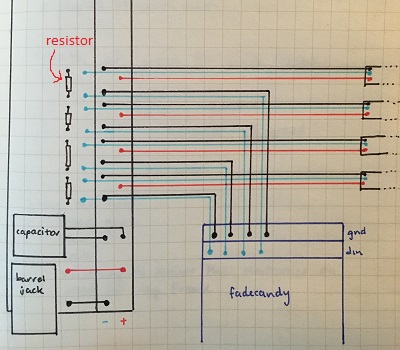 resistor
capacitor
barrel
jack
- +
gnd
din
fadecandy